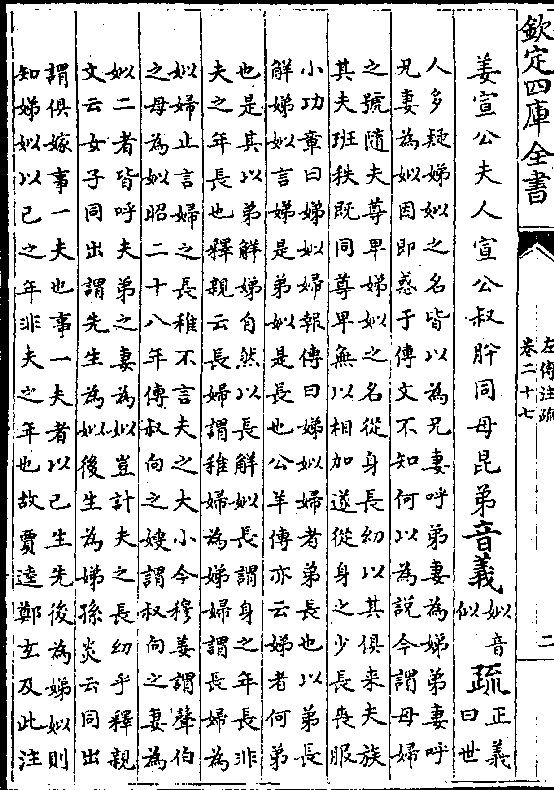 欽定四庫全書
左傳注疏
卷二十七
二
姜宣公夫人宣公叔肸同母昆弟音義姒音似疏正義曰世
人多疑娣姒之名皆以為兄妻呼弟妻為娣弟妻呼
兄妻為姒因即惑于傳文不知何以為說今謂母婦
之號隨夫尊卑娣姒之名從身長幼以其俱来夫族
其夫班秩既同尊卑無以相加遂從身之少長喪服
小功章曰娣姒婦報傳曰娣姒婦者弟長也以弟長
解娣姒言娣是弟姒是長也公羊傳亦云娣者何弟
也是其以弟解娣自然以長解姒長謂身之年長非
夫之年長也釋親云長婦謂稚婦為娣婦謂長婦為
姒婦止言婦之長稚不言夫之大小今穆姜謂聲伯
之母為姒昭二十八年傳叔向之嫂謂叔向之妻為
姒二者皆呼夫弟之妻為姒豈計夫之長幼乎釋親
文云女子同出謂先生為姒後生為娣孫炎云同出
謂俱嫁事一夫也事一夫者以己生先後為娣姒則
知娣姒以己之年非夫之年也故賈逵鄭玄及此注